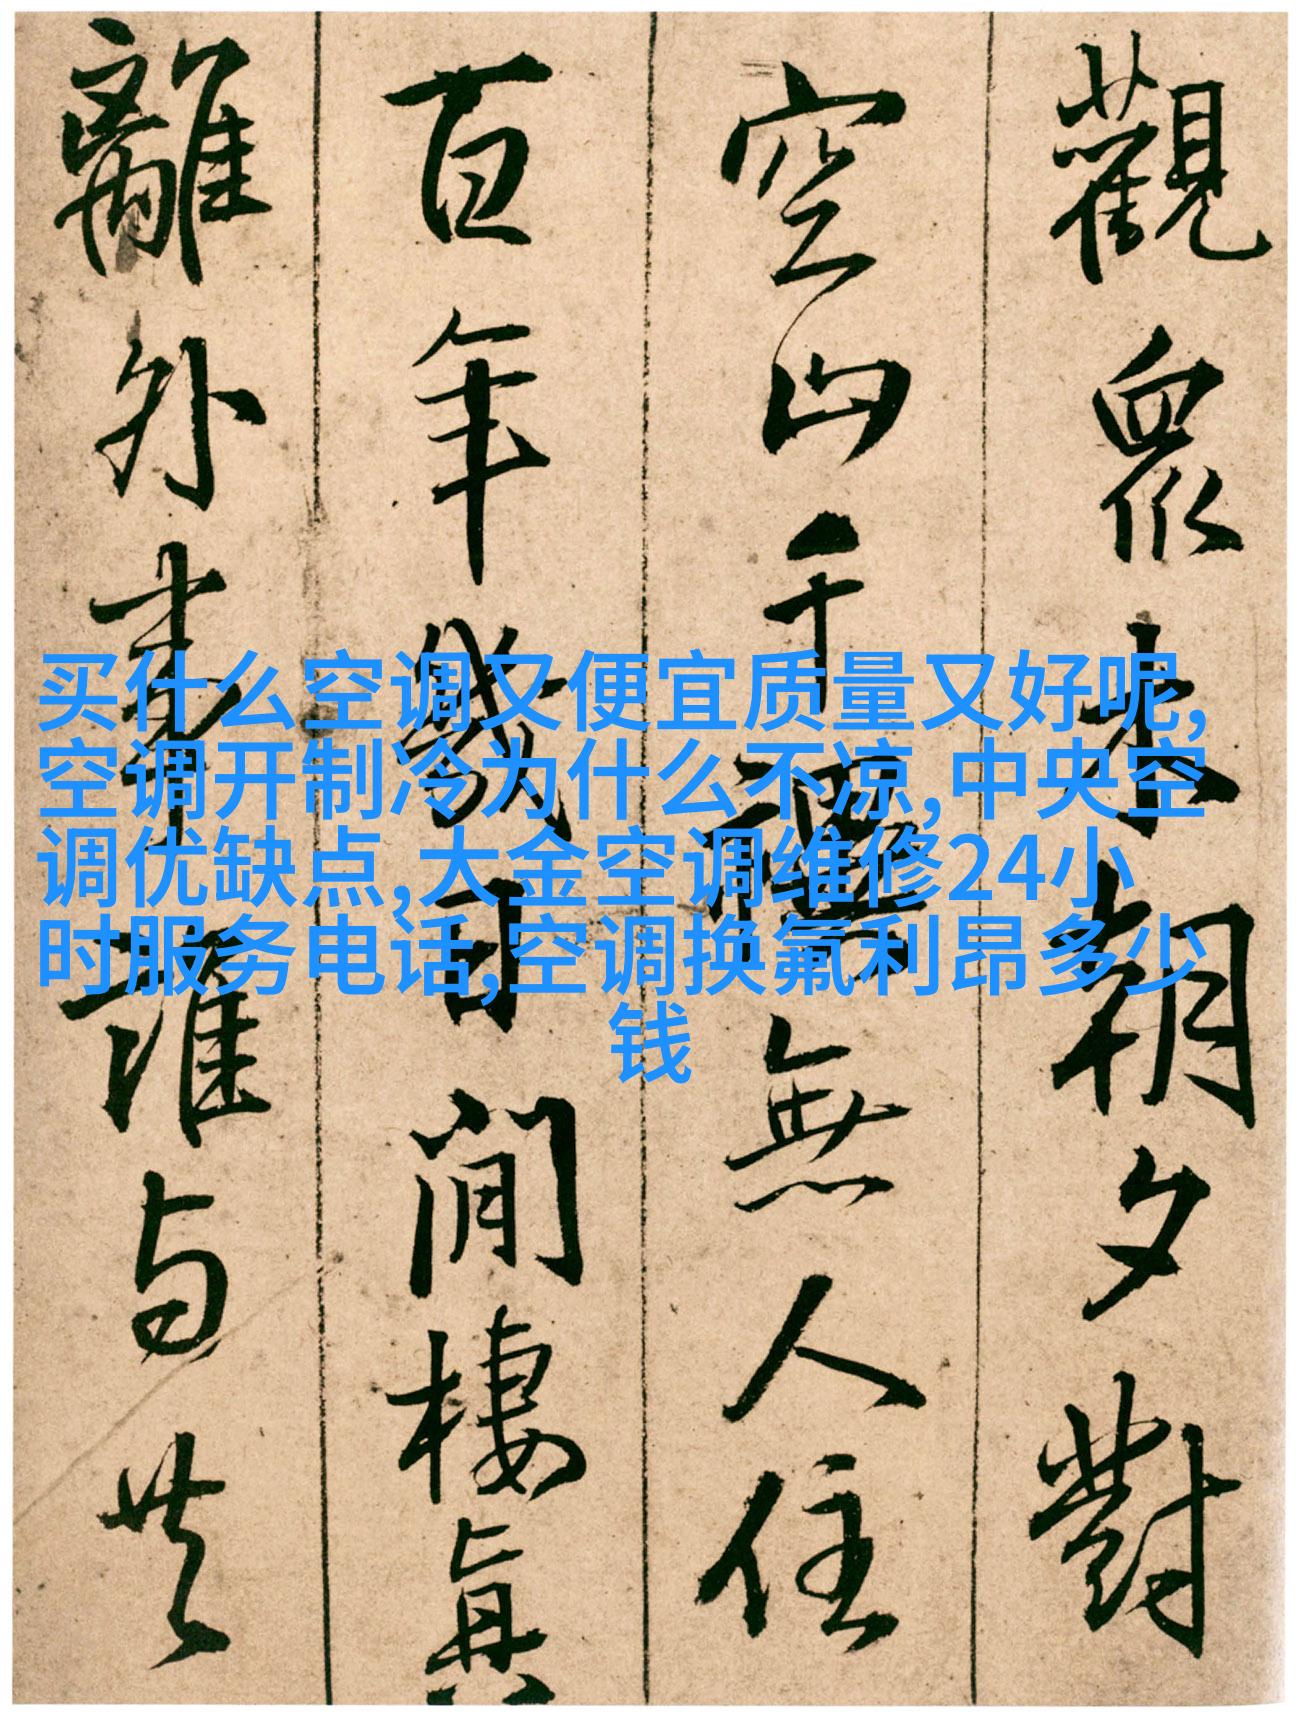 觀眾未朝夕對
空山千疊無人住
百年幾日閒棲真
離外書誰与共
买什么空调又便宜质量又好呢,
空调开制冷为什么不凉,中央空
调优缺点,大金空调维修24小
时服务电话,空调换氟利昂多少
钱